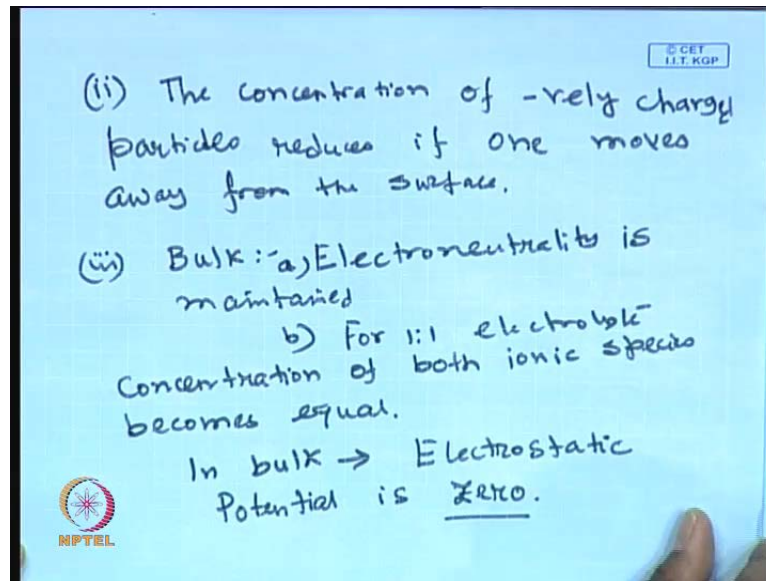 © CET
I.I.T. KGP
(ii) The concentration of -vely charged
particles reduces if one moves
away from the surface.
(iii) Bulk:- a) Electroneutrality is
maintained
b) For 1:1 electrolyte
Concentration of both ionic species
becomes equal.
In bulk → Electrostatic
Potential is zero.
NPTEL